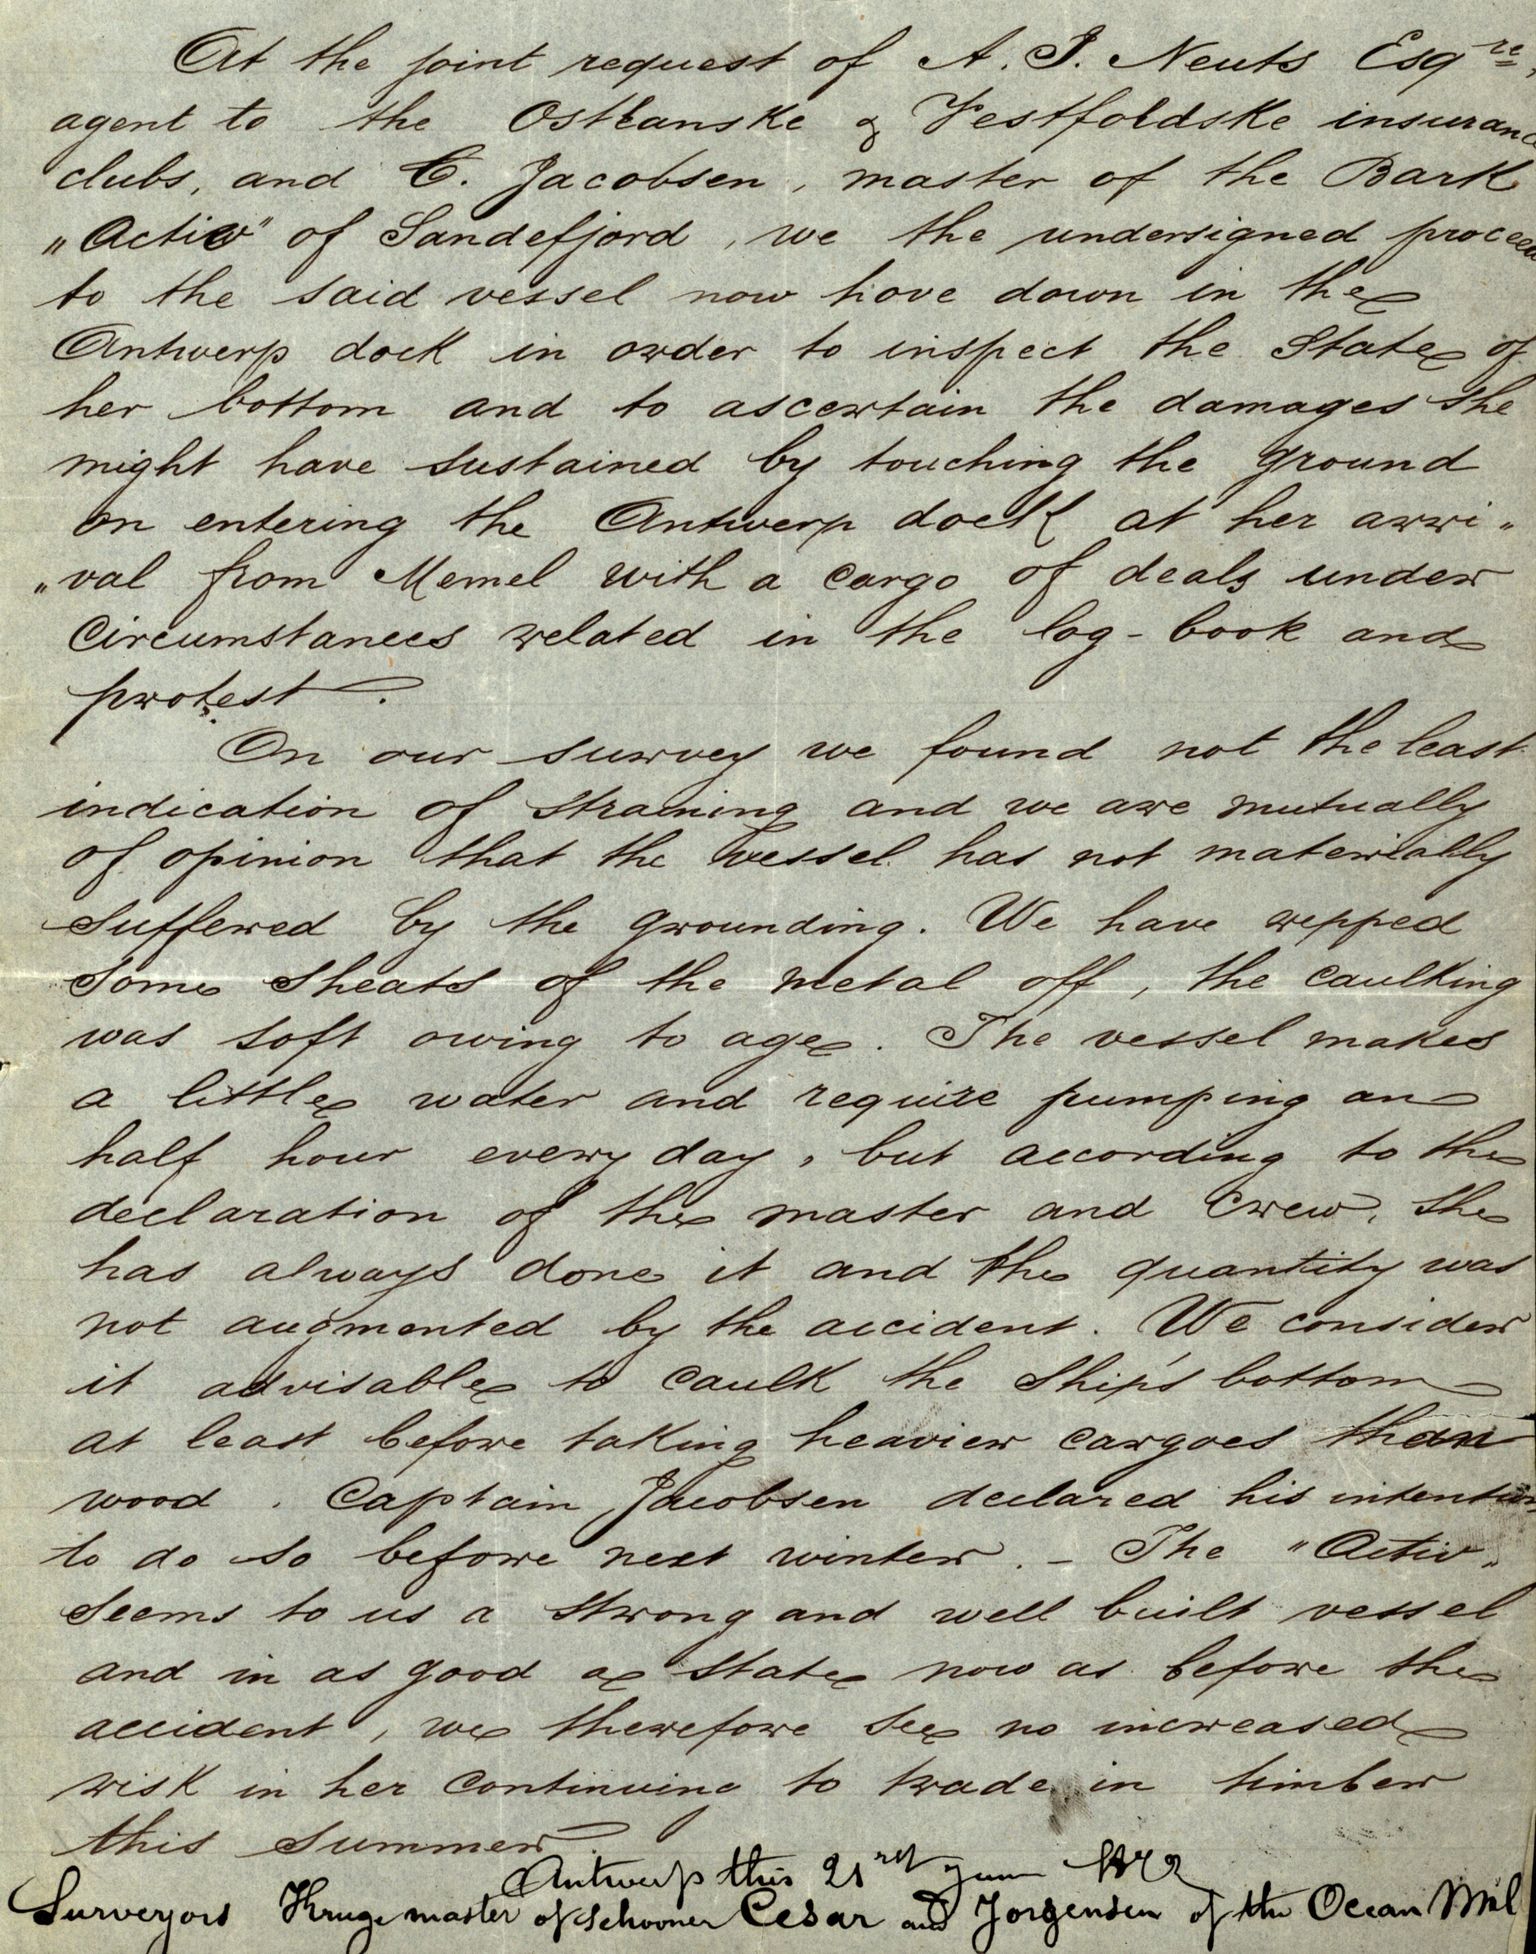 At the joint request of A. J. Neuts Esqre,
agent to the Ostlanske & Vestfoldske insurance
clubs, and C. Jacobsen, master of the Bark
„Activ" of Sandefjord, we the undersigned proceed
to the said vessel now hove down in the
Antwerp dock in order to inspect the State of
her bottom and to ascertain the damages she
might have sustained by touching the ground
on entering the Antwerp dock at her arri„
„val from Memel with a cargo of deals under
circumstances related in the log-book and
protest.
On our survey we found not the least
indication of straining and we are mutually
of opinion that the vessel has not materially
suffered by the grounding. We have repped
some sheats of the metal off, the caulking
was soft owing to age. The vessel makes
a little water and require pumping an
half hour every day, but according to the
declaration of the master and crew, she
has always done it and the quantity was
not augmented by the accident. We consider
it advisable to caulk the ship's bottom
at least before taking heavier cargoes than
wood. Captain Jacobsen declared his intention
to do so before next winter. – The "Activ„
seems to us a strong and well built vessel
and in as good a state now as before the
accident, we therefore see no increased
risk in her continuing to trade in timber
this summer
Antwerp this 21rst
Surveyors Kruge master of schooner Cesar and Jorgensen of the Ocean